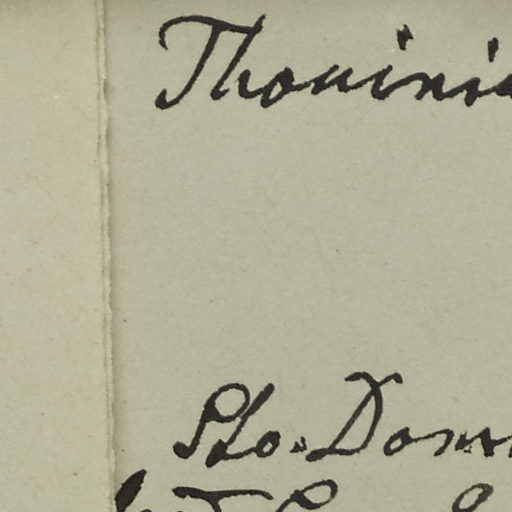 Thouinia
Sto. Dom